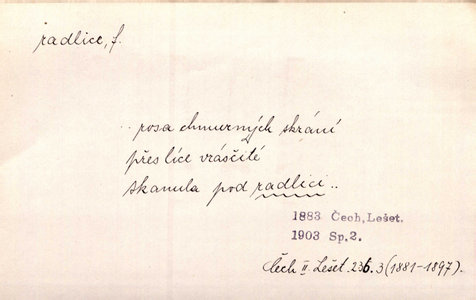 radlice, f.
..rosa chmurných skrání
přes líce vrásčité
skanula pod radlici..
1883 Čech, Lešet.
1903 Sp.2.
Čech II. Lešet. 236.3 (1881-1897).